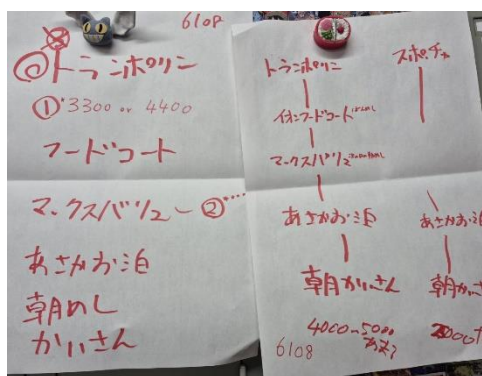 6108
◎トランポリン
① 3300 or 4400
フードコート
マックスバリュー ②
あさかお泊
朝めし
かいさん
トランポリン
イオンフードコート
マックスバリュ
あさかお泊
朝かいさん
4000~5000
6108
スポッチャ
あさかお泊
朝かいさ